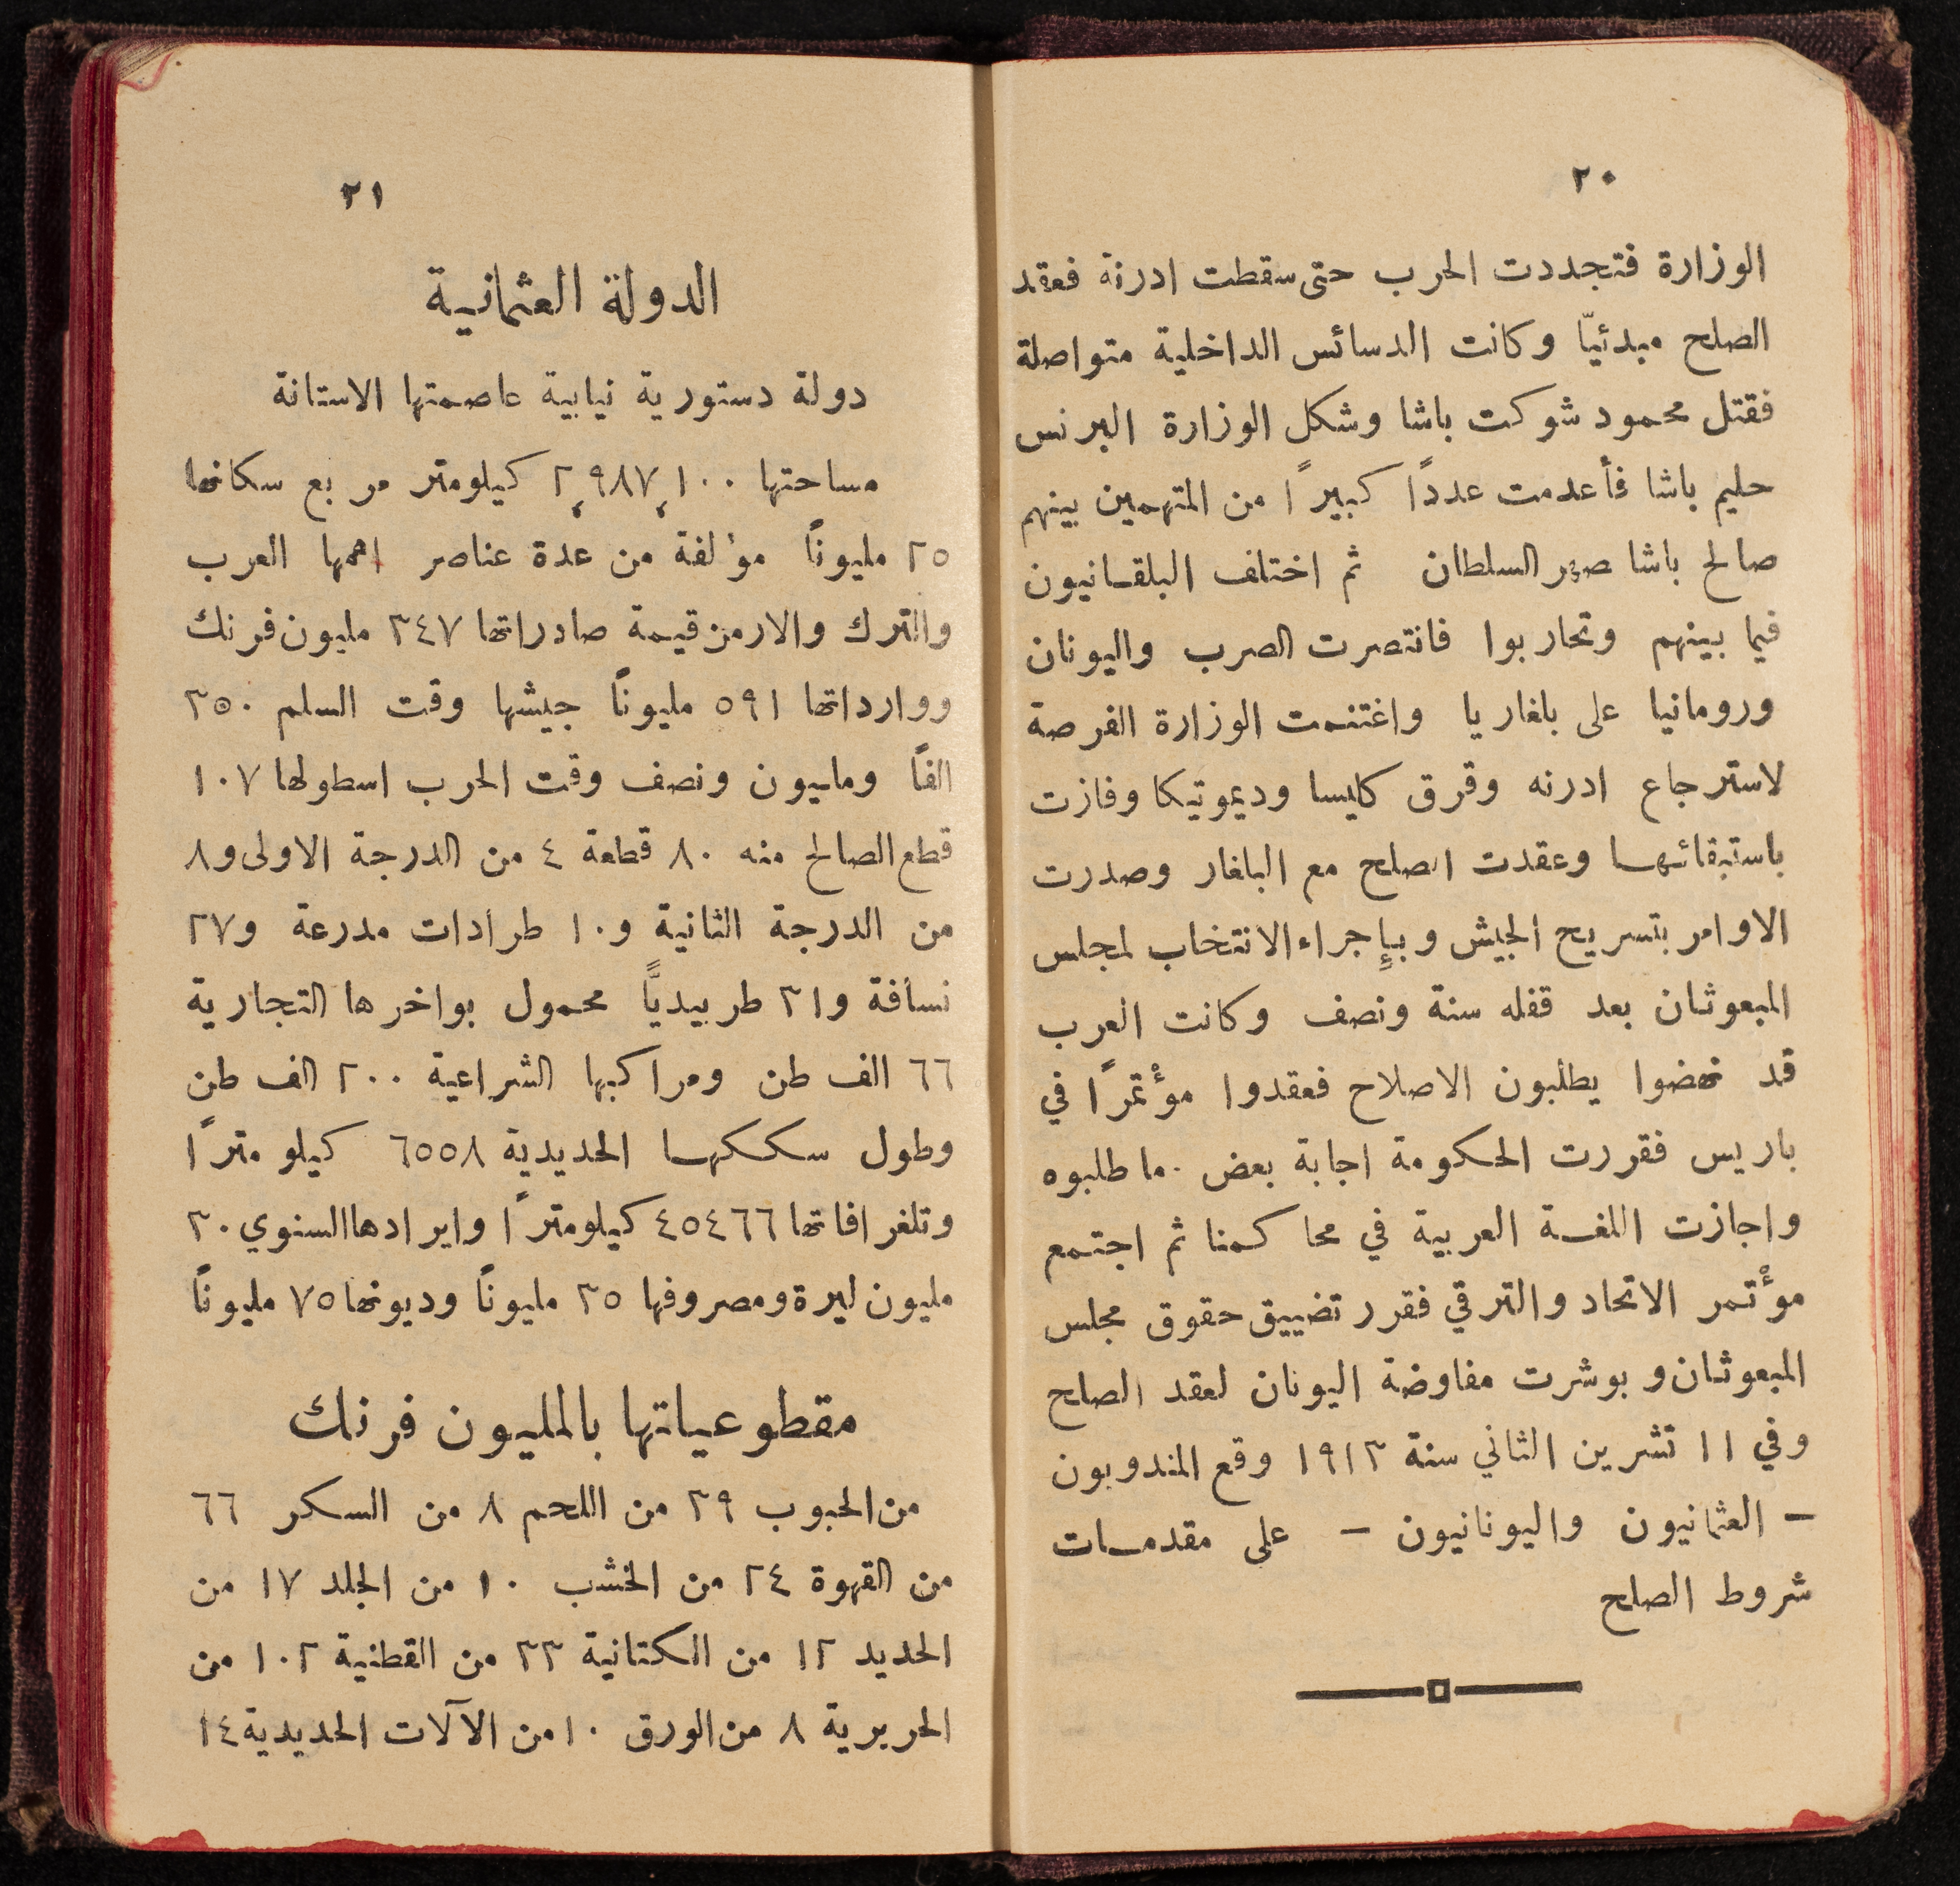 ٢٠
الوزارة فتجددت الحرب حتى سقطت ادرنة فعقد
الصلح مبدئيّا وكانت الدسائس الداخلية متواصلة
فقتل محمود شوكت باشا وشكل الوزارة البرنس
حليم باشا فأعدمت عددًا كبيرًا من المتهمين بينهم
صالح باشا صهر السلطان ثم اختلف البلقانيون
فيما بينهم وتحاربوا فانتصرت الصرب واليونان
ورومانيا على بلغاريا واغتنمت الوزارة الفرصة
لاسترجاع ادرنه وقرق كليسا وديموتيكا وفازت
باستبقائها وعقدت الصلح مع البلغار وصدرت
الاوامر بتسريح الجيش وبإجراء الانتخاب لمجلس
المبعوثان بعد قفله سنة ونصف وكانت العرب
قد نهضوا يطلبون الاصلاح فعقدوا مؤتمرًا في
باريس فقررت الحكومة اجابة بعض ما طلبوه
واجازت اللغة العربية في محاكمنا ثم اجتمع
مؤتمر الاتحاد والترقي فقرر تضييق حقوق مجلس
المبعوثان وبوشرت مفاوضة اليونان لعقد الصلح
وفي ١١ تشرين الثاني سنة ١٩١٣ وقع المندوبون
– العثمانيون واليونانيون – على مقدمات
شروط الصلح
٢١
الدولة العثمانية
دولة دستورية نيابية عاصمتها الاستانة
مساحتها ٢,٩٨٧,١٠٠ كيلومتر مربع سكانها
٢٥ مليونًا مؤلفة من عدة عناصر اهمها العرب
والترك والارمن قيمة صادراتها ٣٤٧ مليون فرنك
ووارداتها ٥٩١ مليونًا جيشها وقت السلم ٣٥٠
الفًا ومليون ونصف وقت الحرب اسطولها ١٠٧
قطع الصالح منه ٨٠ قطعة ٤ من الدرجة الاولى و٨
من الدرجة الثانية و١٠ طرادات مدرعة و٢٧
نسافة و٣١ طربيديًّا محمول بواخرها التجارية
٦٦ الف طن ومراكبها الشراعية ٢٠٠ الف طن
وطول سككها الحديدية ٦٥٥٨ كيلو مترًا
وتلغرافاتها ٤٥٤٦٦ كيلومترًا وايرادها السنوي ٣٠
مليون ليرة ومصروفها ٣٥ مليونًا وديونها ٧٥ مليونًا
مقطوعياتها بالمليون فرنك
من الحبوب ٣٩ من اللحم ٨ من السكر ٦٦
من القهوة ٢٤ من الخشب ١٠ من الجلد ١٧ من
الحديد ١٢ من الكتانية ٣٣ من القطنية ١٠٢ من
الحريرية ٨ من الورق ١٠ من الآلات الحديدية ١٤